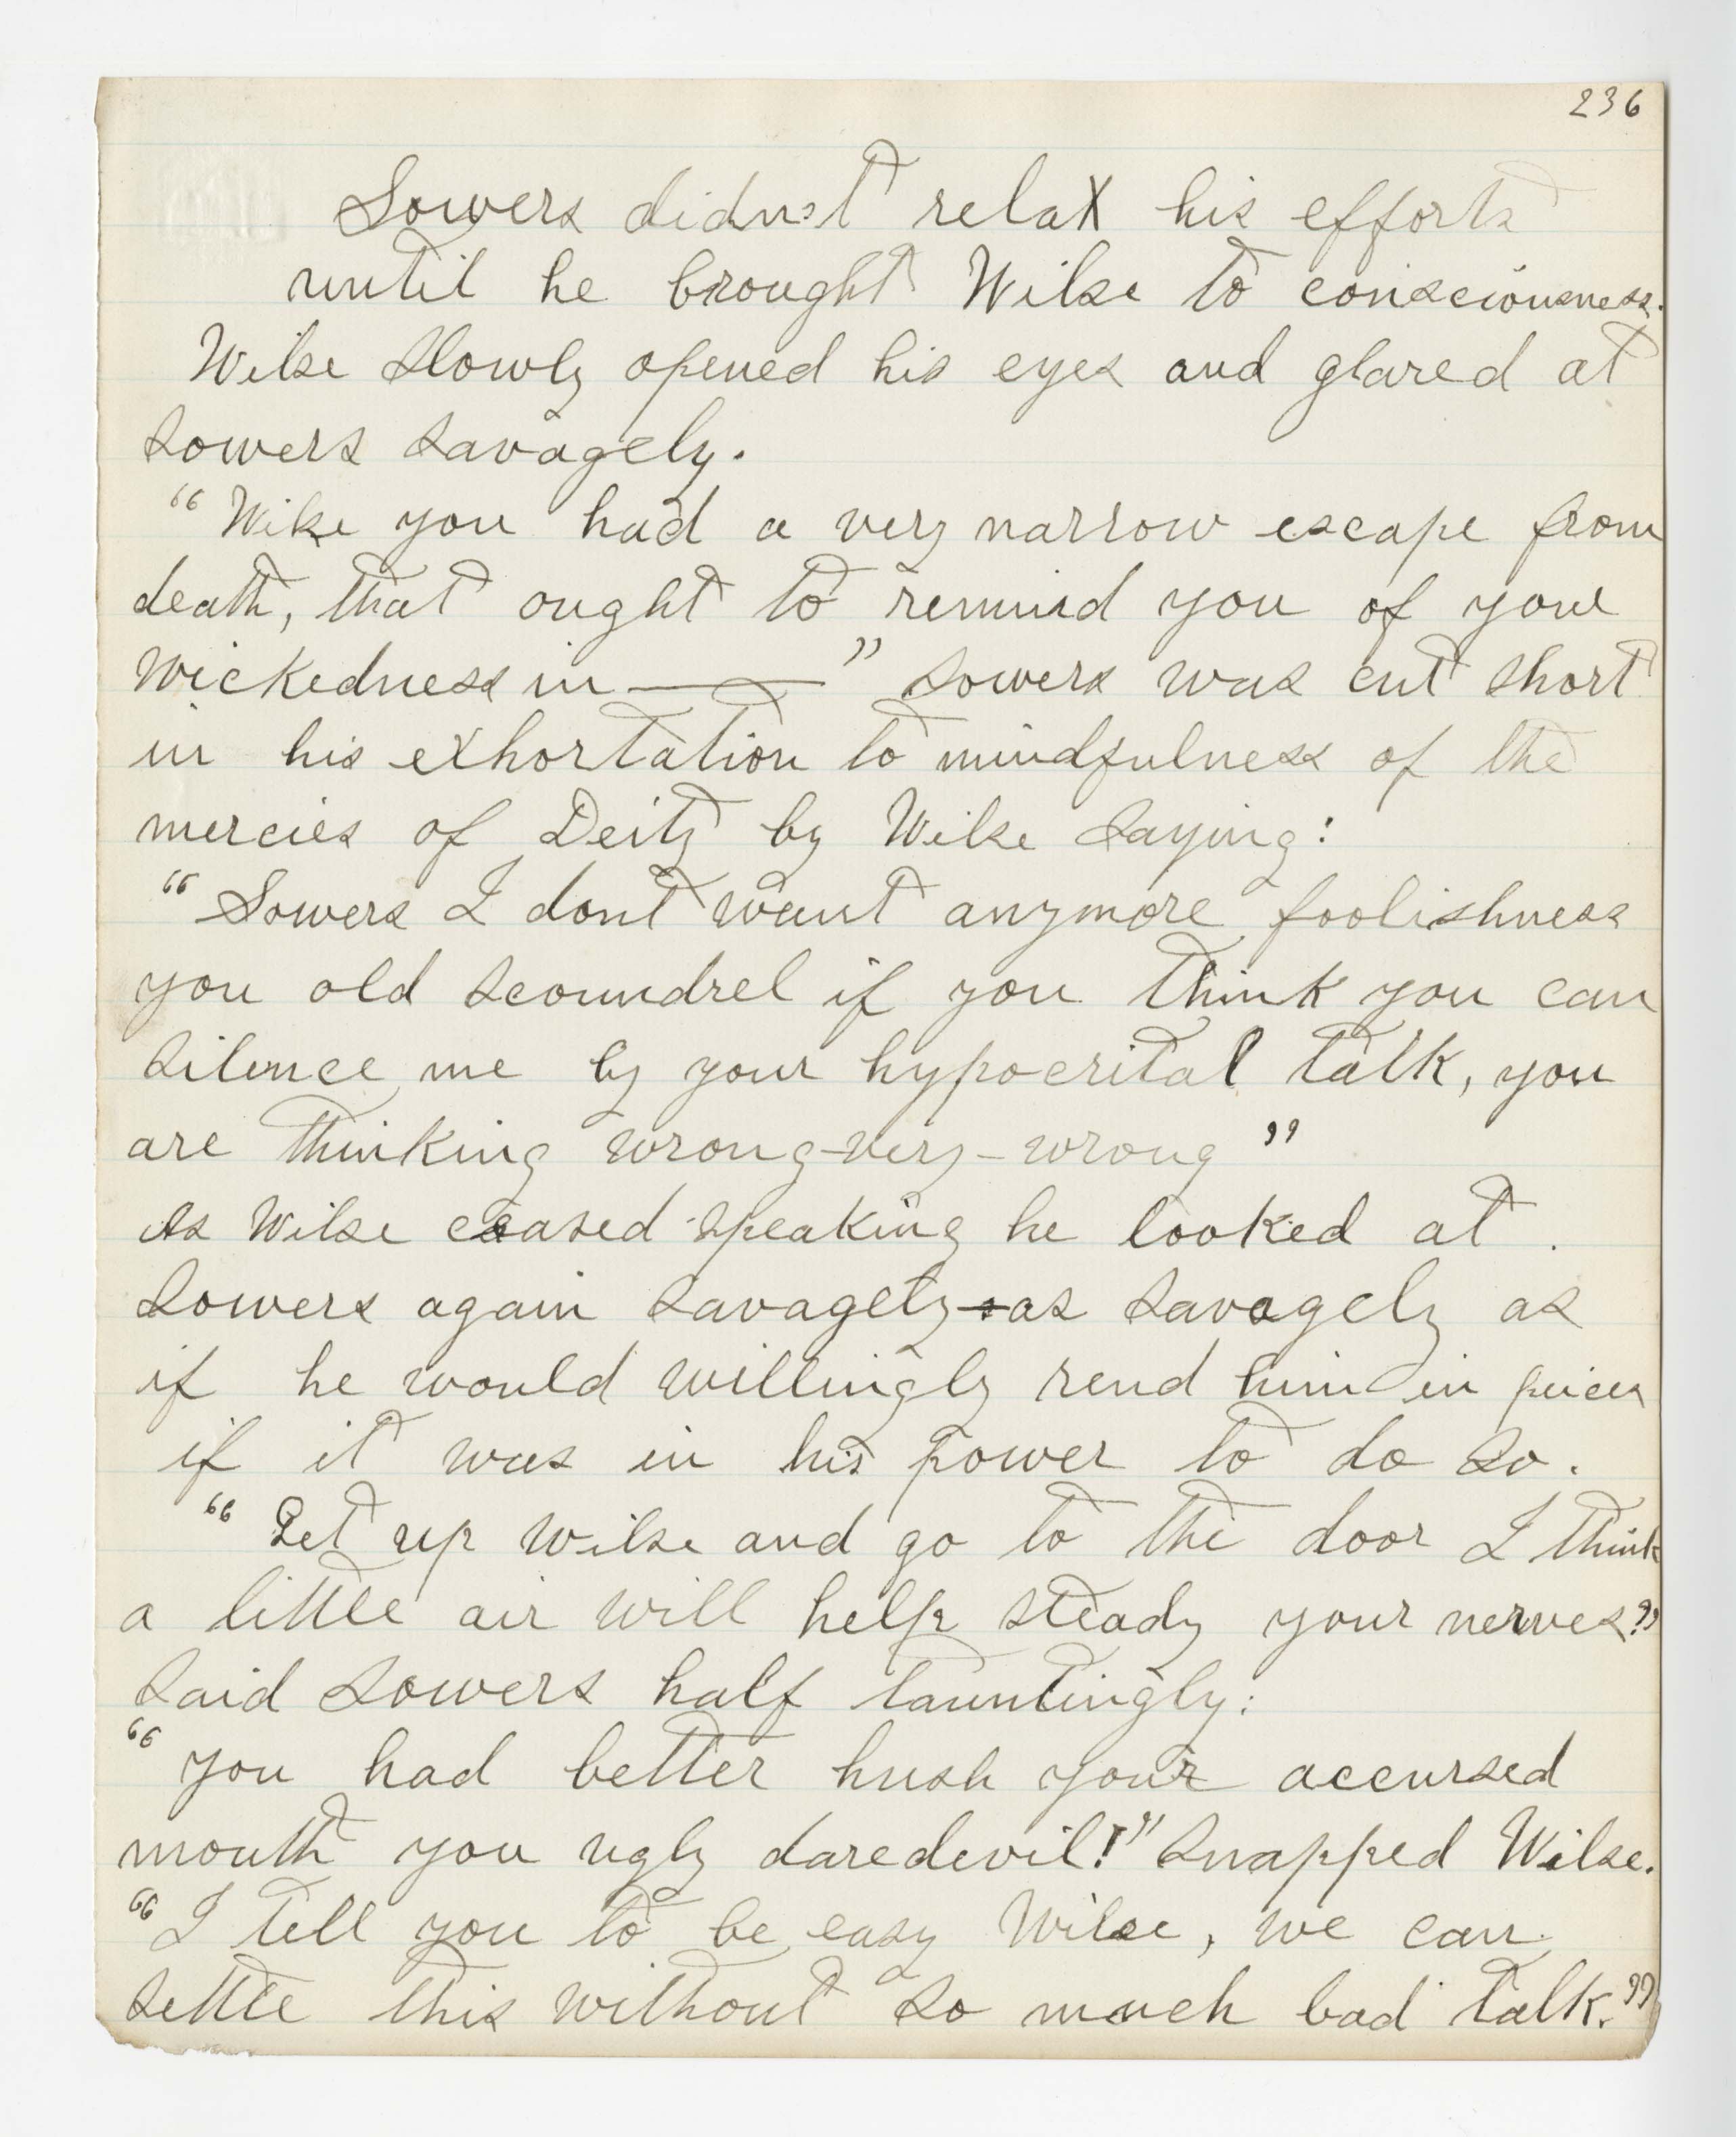 236
Sowers didn't relax his efforts
until he brought Wilse to consciousness.
Wilse slowly opened his eyes and glared at
Sowers savagely.
"Wilse you had a very narrow escape from
death, that ought to remind you of your
wickedness in ——— " Sowers was cut short
in his exhortation to mindfulness of the
mercies of Deity by Wilse saying:
"Sowers I dont want anymore foolishness
you old scoundrel if you think you can
silence me by your hypocrital talk, you
are thinking wrong-very-wrong"
As Wilse ceased speaking he looked at
Sowers again savagely-as savagely as
if he would willingly rend him in peices
if it was in his power to do so.
"Get up Wilse and go to the door I think
a little air will help steady your nerves?"
said Sowers half tauntingly:
"you had better hush your accursed
mouth you ugly daredevil!" snapped Wilse.
"I tell you to be easy Wilse, we can
settle this without so much bad talk."